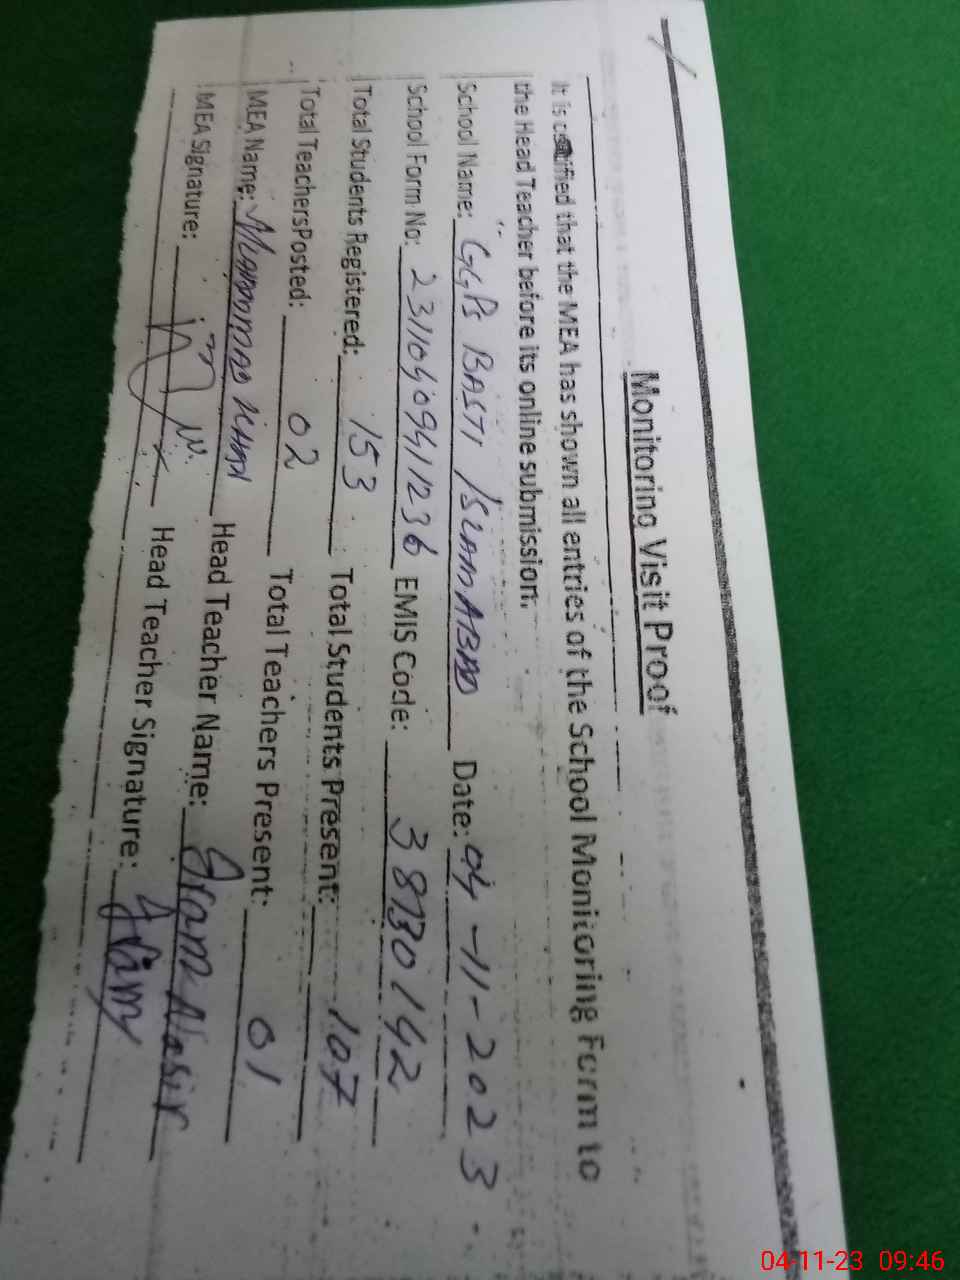 Monitoring Visit Proof
It is certified that the MEA has shown all entries of the School Monitoring Form to
the Head Teacher before its online submission.
School Name: GGPS BASTI ISLAMABAD Date: 04-11-2023
School Form No: 23110409411236 EMIS Code: 38130142
Total Students Registered: 153 Total Students Present: 107
Total TeachersPosted: 02 Total Teachers Present: 01
MEA Name: MUHAMMAD KHAN Head Teacher Name: Iram Nasir
MEA Signature: Head Teacher Signature:
04-11-23 09:46